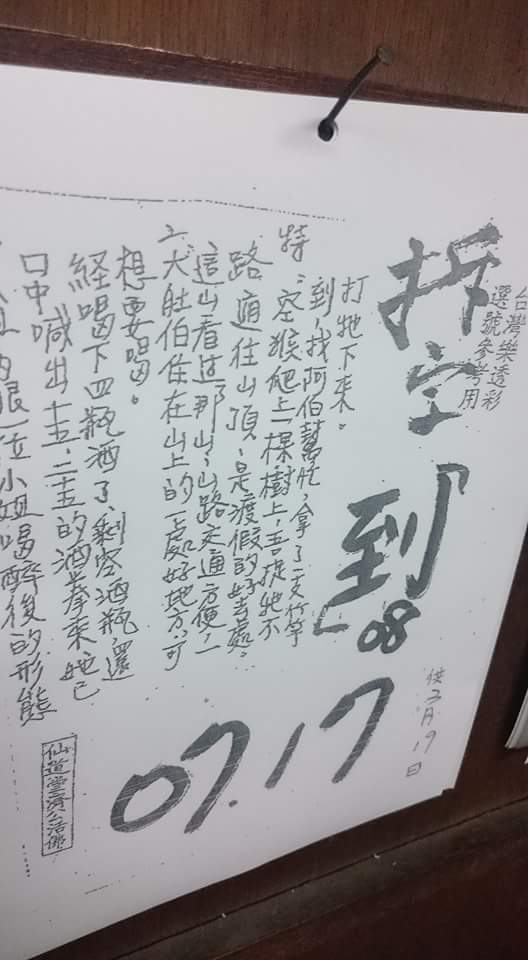 台灣樂透彩
選號參考用
拆空『到』
08
07.17
供3月19日
打牠下來。
到，找阿伯幫忙，拿了一支竹竿
特：空猴爬上一棵樹上，吾捉牠不
路通往山頂，是渡假的好去處，
這山看過那山，山路交通方便，一
大肚伯住在山上的一處好地方，可
想要喝。
經喝下四瓶酒了，剩空酒瓶，還
口中喊出十五、二十五的酒拳來她已
的眼一位小姐喝醉後的形態
仙道堂濟公活佛